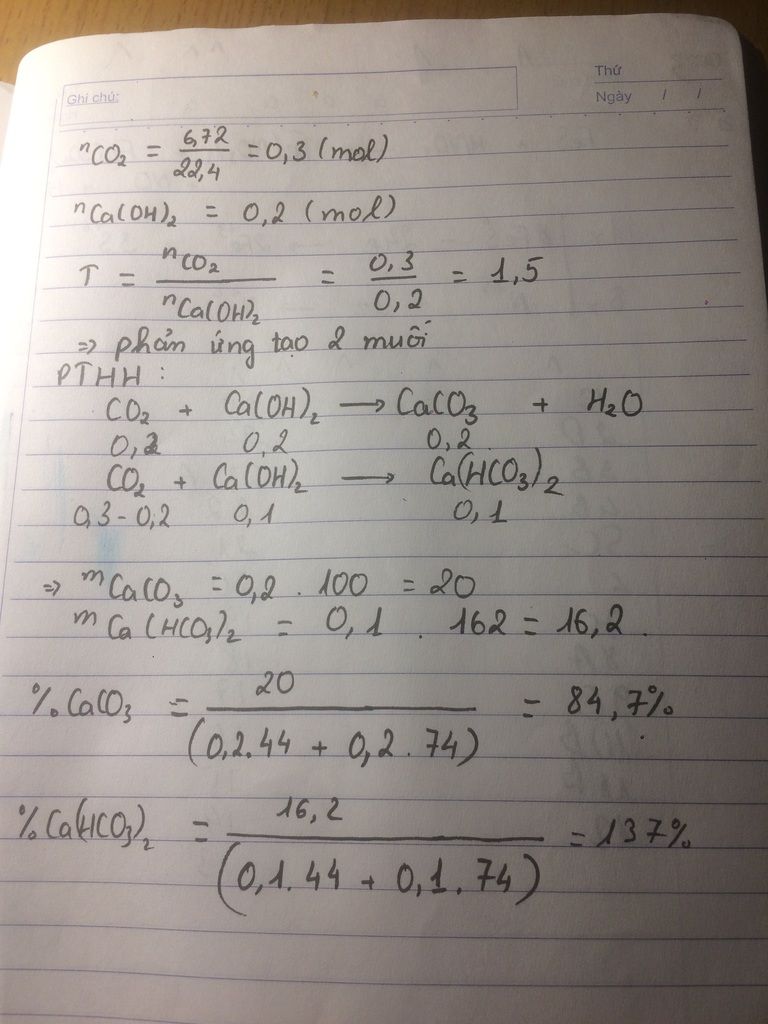 Ghi chú:
Thứ
Ngày / /
nCO2 = 6,72/22,4 = 0,3 (mol)
nCa(OH)2 = 0,2 (mol)
T = nCO2/nCa(OH)2 = 0,3/0,2 = 1,5
=> phản ứng tạo 2 muối
PTHH :
CO2 + Ca(OH)2 → CaCO3 + H2O
0,2 0,2 0,2
CO2 + Ca(OH)2 → Ca(HCO3)2
0,3-0,2 0,1 0,1
=> mCaCO3 = 0,2 . 100 = 20
mCa(HCO3)2 = 0,1 . 162 = 16,2.
%CaCO3 = 20/(0,2.44 + 0,2.74) = 84,7%
%Ca(HCO3)2 = 16,2/(0,1.44 + 0,1.74) = 137%